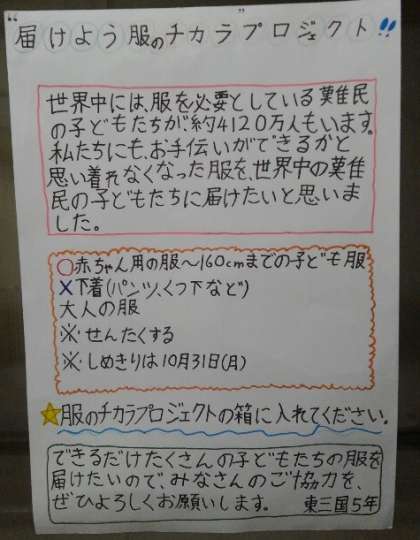 "届けよう服のチカラプロジェクト"!!
世界中には、服を必要としている難民
の子どもたちが、約4120万人もいます。
私たちにも、お手伝いができるかと
思い着れなくなった服を、世界中の難
民の子どもたちに届けたいと思いま
した。
○赤ちゃん用の服～160cmまでの子ども服
×下着(パンツ、くつ下など)
大人の服
※せんたくする
※しめきりは10月31日(月)
★服のチカラプロジェクトの箱に入れてください。
できるだけたくさんの子どもたちの服を
届けたいので、みなさんのご協力を、
ぜひよろしくお願いします。 東三国5年